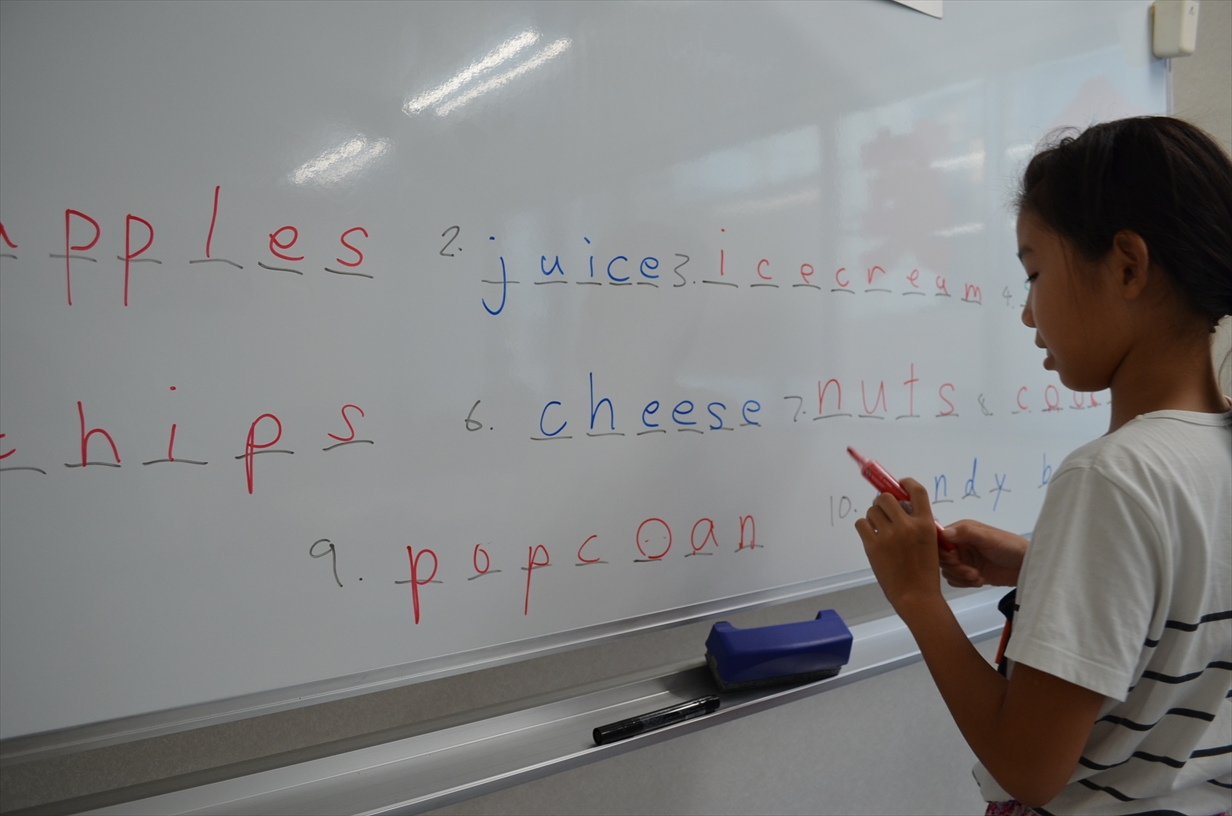 pples 2. juice 3. icecream 4.
hips 6. cheese 7. nuts 8.
9. popcoan 10. ndy